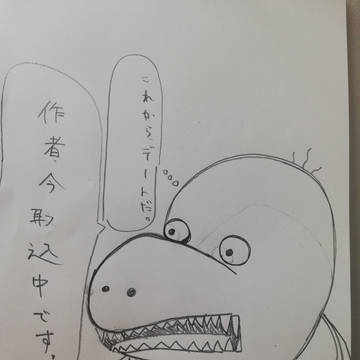 これからデートだ。
作者今取込中です。